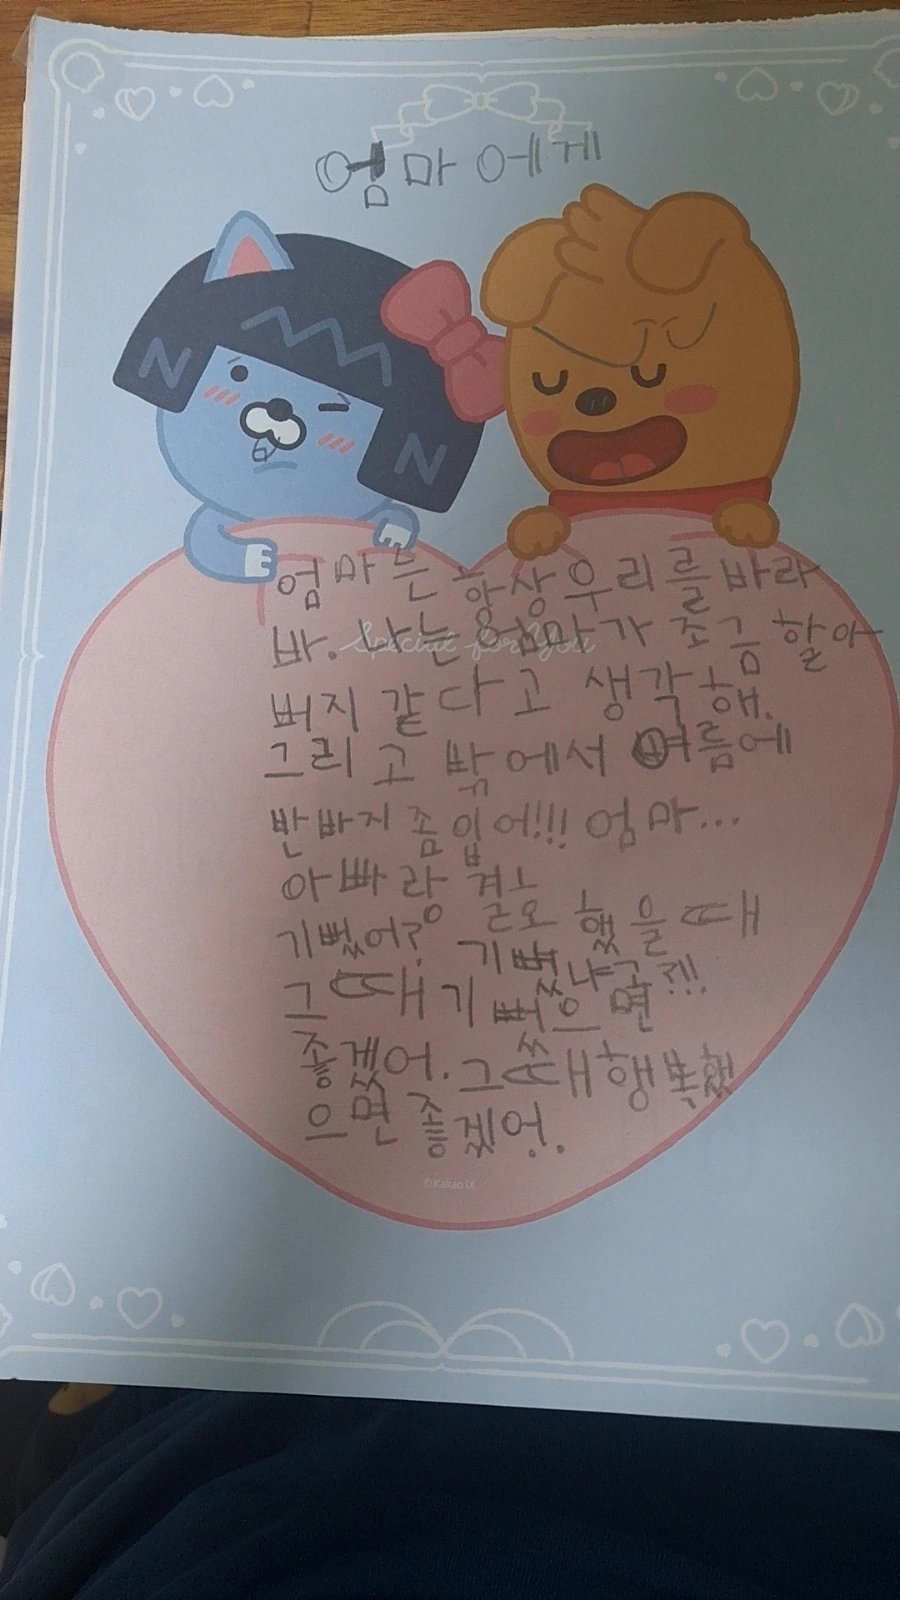 엄마에게
엄마는 항상 우리를 바라
봐. 나는 엄마가 조금 할아
버지 같다고 생각해.
Special for You
그리고 밖에서 여름에
반바지 좀 입어!!! 엄마...
아빠랑 결
혼 했을 때
기뻤어? 기뻤냐고?!!
그 때 기뻤으면
좋겠어. 그때 행복했
으면 좋겠어.
N
N
©Kakao IX